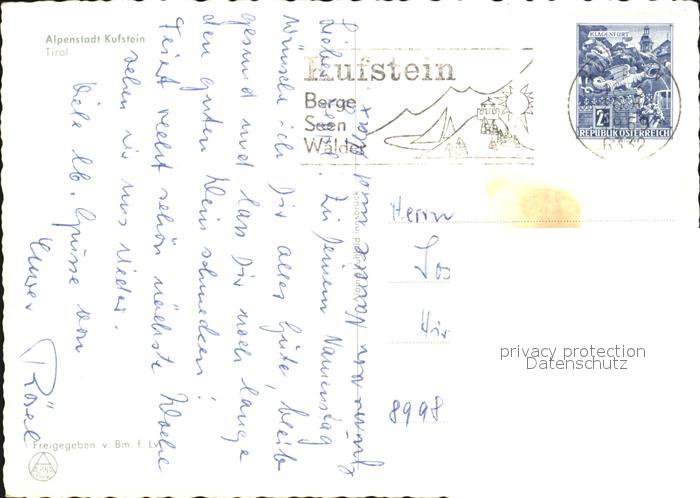 Alpenstadt Kufstein
Tirol
Kufstein
Berge
Seen
Wälder
KLAGENFURT
2S
REPUBLIK ÖSTERREICH
6332
Lieber
Zu Deinem Namenstag
wünsche ich Dir alles Gute, bleib
gesund und lass Dir noch lange
den guten Wein schmecken!
Feiert recht schön nächste Woche
sehen wir uns wieder.
Viele lb. Grüsse von
Eurer
Rösel
Herrn
8998
privacy protection
Datenschutz
Freigegeben v. Bm. f. Lv.